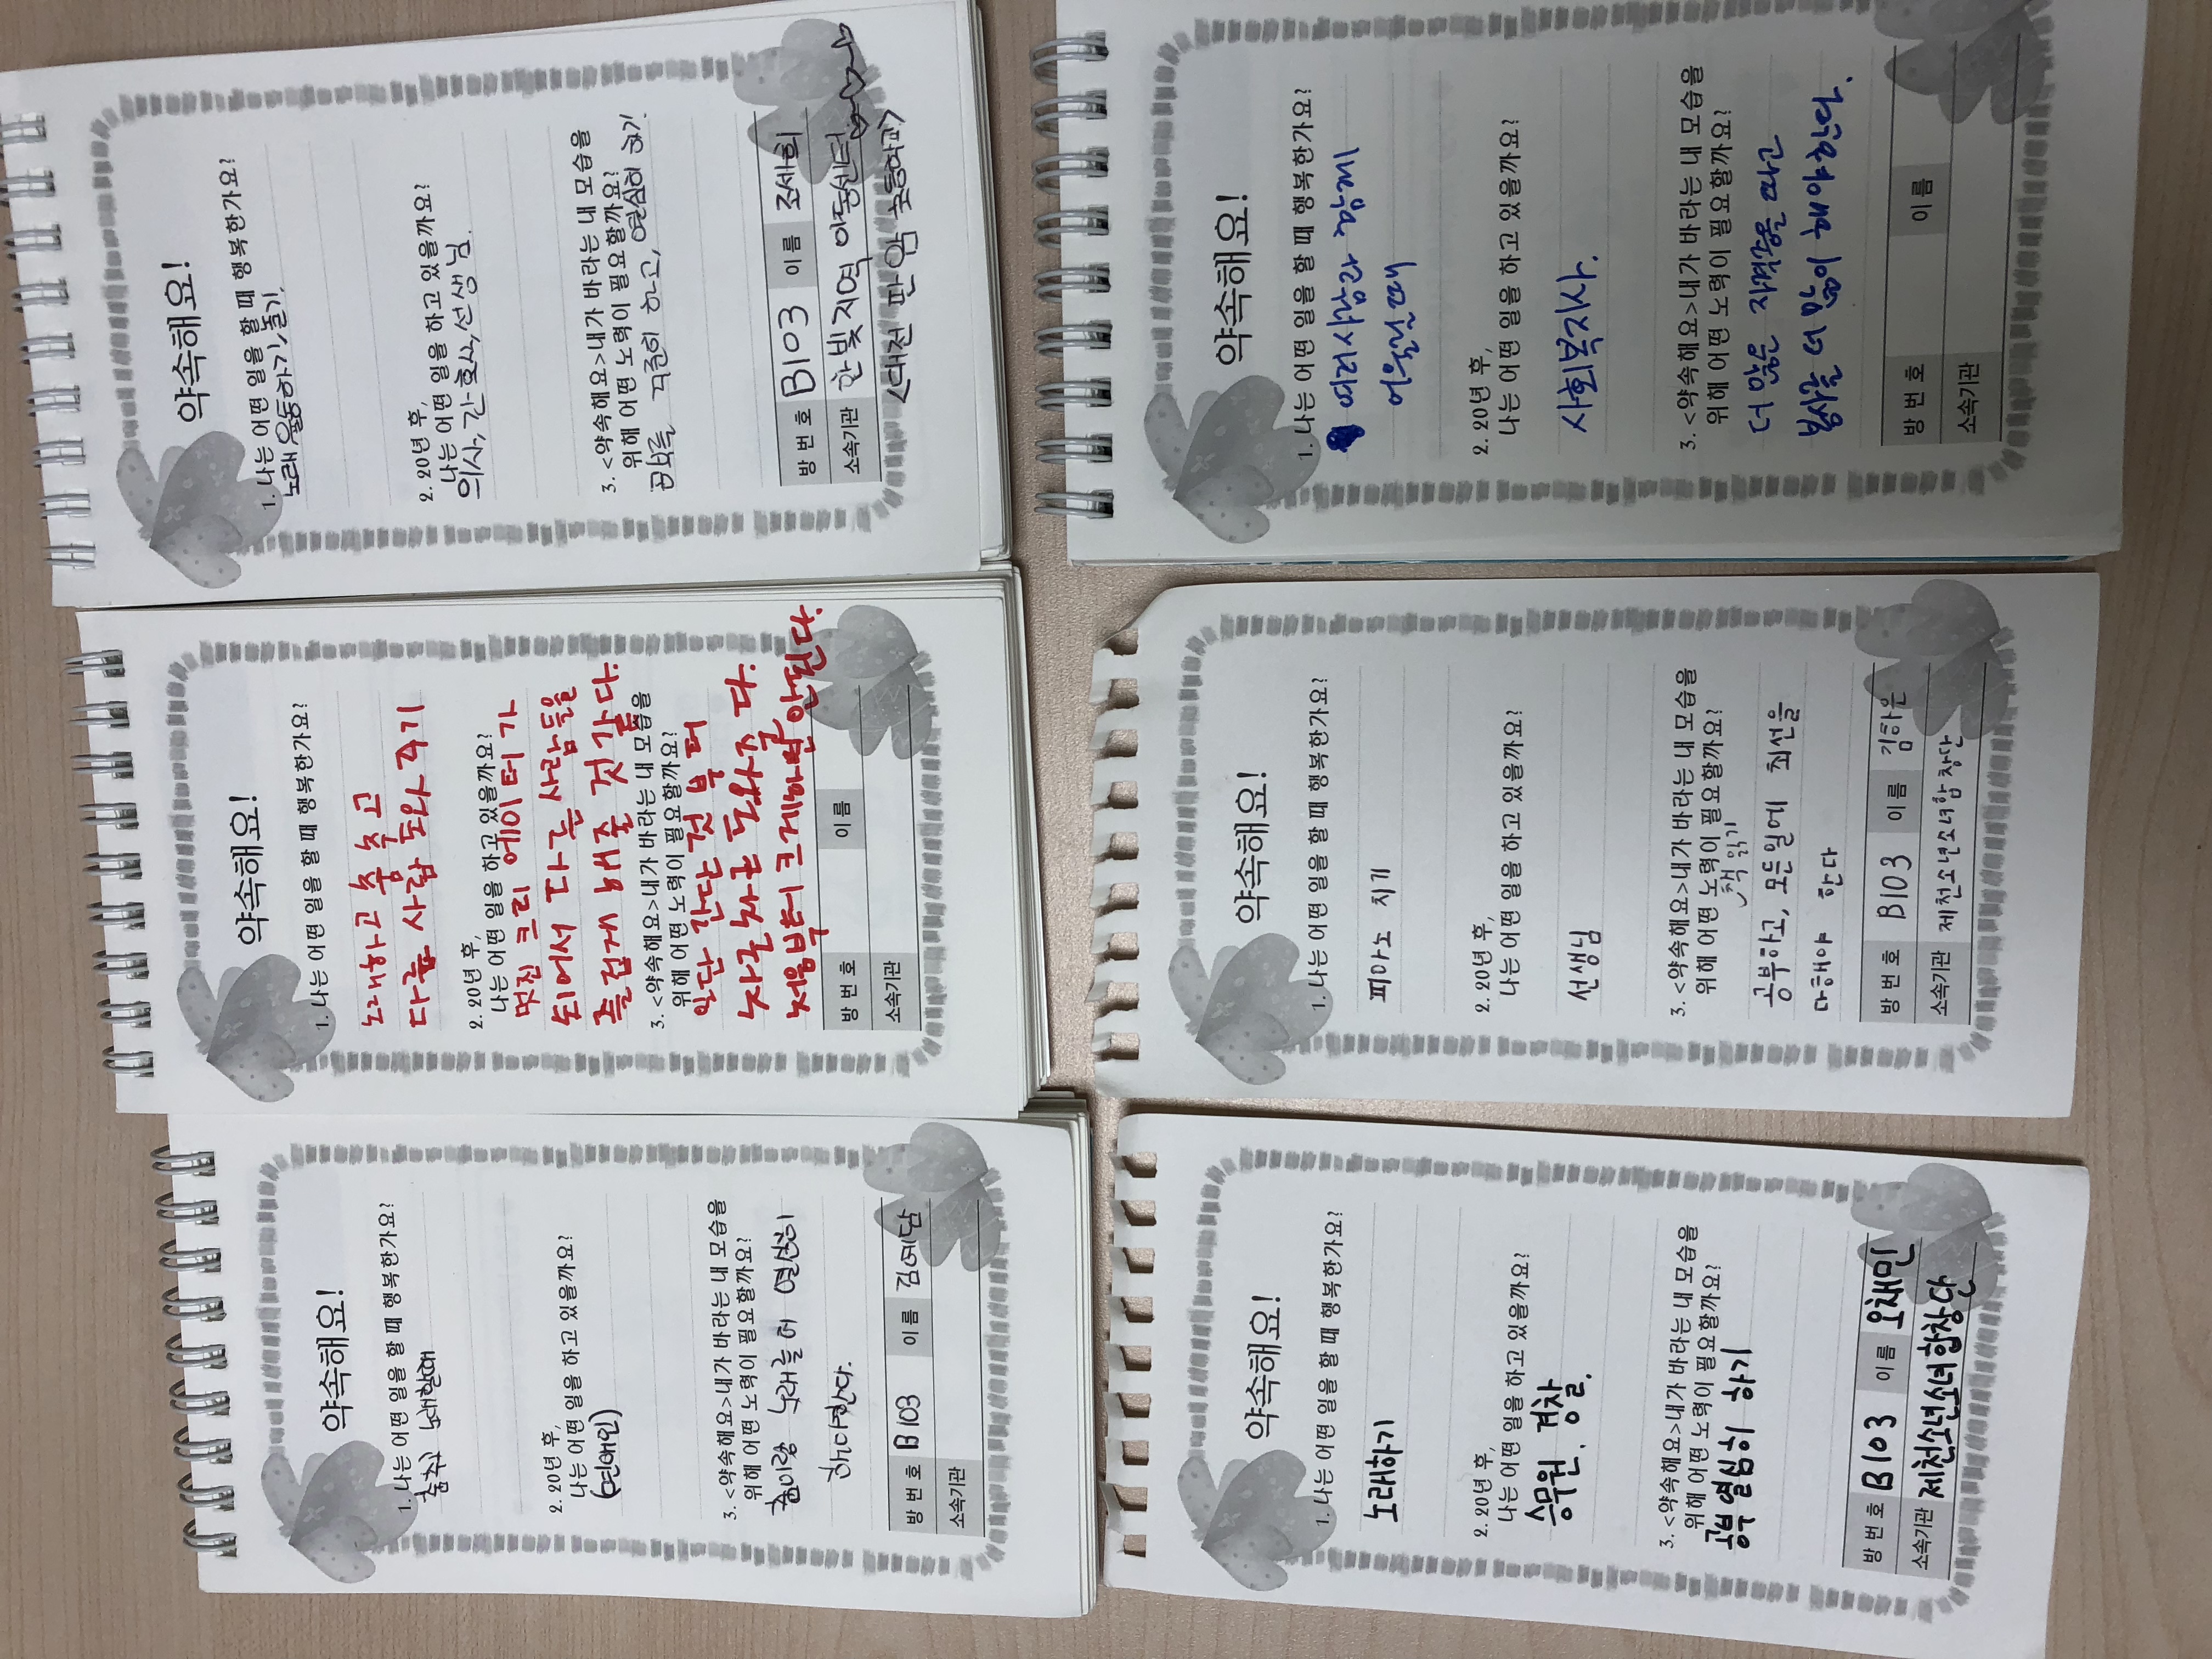 약속해요!
1. 나는 어떤 일을 할 때 행복한가요?
춤추기 노래할때
2. 20년 후,
나는 어떤 일을 하고 있을까요?
(연애인)
3. <약속해요>내가 바라는 내 모습을
위해 어떤 노력이 필요할까요?
춤이랑 노래를 더 열심히
해야한다.
방 번호 B103 이름 김예담
소속기관
약속해요!
1. 나는 어떤 일을 할 때 행복한가요?
노래하고 춤 추고
다른 사람 도와 주기
2. 20년 후,
나는 어떤 일을 하고 있을까요?
멋진 크리 에이터 가
되어서 다른 사람들을
즐겁게 해줄 것 같다.
3. <약속해요>내가 바라는 내 모습을
위해 어떤 노력이 필요할까요?
일단 간단 것 부터
차근차근 도와줄 다.
처음부터 크게하면 안된다.
방 번호 이름
소속기관
약속해요!
1. 나는 어떤 일을 할 때 행복한가요?
노래,운동하기,놀기.
2. 20년 후,
나는 어떤 일을 하고 있을까요?
의사, 간호사,선생님.
3. <약속해요>내가 바라는 내 모습을
위해 어떤 노력이 필요할까요?
공부를 꾸준히 하고, 열심히 하기.
방 번호 B103 이름 조세희
소속기관 한빛지역 아동센터
<대전 판암 초등학교>
약속해요!
1. 나는 어떤 일을 할 때 행복한가요?
노래하기
2. 20년 후,
나는 어떤 일을 하고 있을까요?
승무원. 경찰.
3. <약속해요>내가 바라는 내 모습을
위해 어떤 노력이 필요할까요?
공부 열심히 하기
방 번호 B103 이름 오채민
소속기관 제천소년소녀합창단
약속해요!
1. 나는 어떤 일을 할 때 행복한가요?
피아노 치기
2. 20년 후,
나는 어떤 일을 하고 있을까요?
선생님
3. <약속해요>내가 바라는 내 모습을
위해 어떤 노력이 필요할까요?
책 읽기
공부하고, 모든일에 최선을
다해야 한다
방 번호 B103 이름 김하은
소속기관 제천소년소녀합창단
약속해요!
1. 나는 어떤 일을 할 때 행복한가요?
여러사람과 함께
어울릴때
2. 20년 후,
나는 어떤 일을 하고 있을까요?
사회복지사.
3. <약속해요>내가 바라는 내 모습을
위해 어떤 노력이 필요할까요?
더 많은 자격증을 따고
봉사를 더 많이 해야한다.
방 번호 이름
소속기관